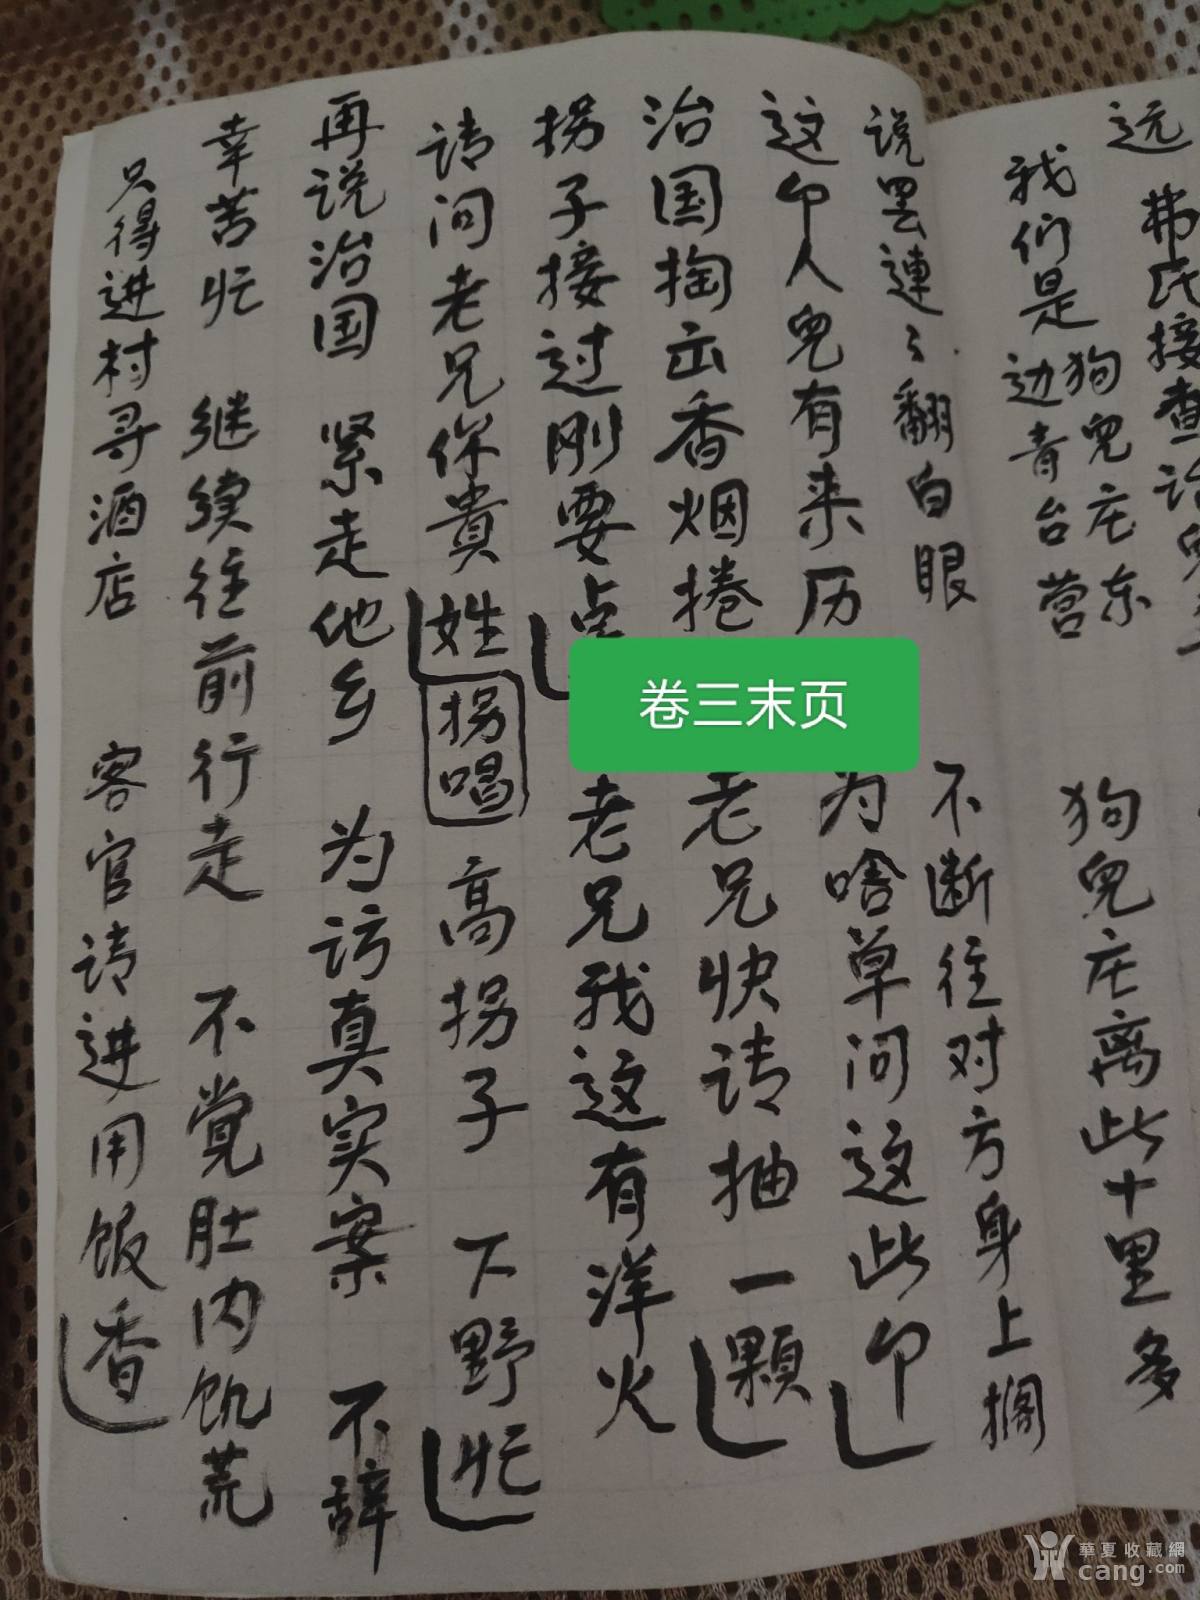 远
我们是狗兒庄东边青台营 狗兒庄离此十里多
说罢連々翻白眼 不断往对方身上搁
这个人兒有来历 为啥单问这些个
治国掏出香烟捲 老兄快请抽一颗
拐子接过刚要点 老兄我这有洋火
请问老兄你貴姓 拐唱 高拐子 下野忙
再说治国 紧走他乡 为访真实案 不辞
辛苦忙 继续往前行走 不觉肚内饥荒
只得进村寻酒店 客官请进用饭香
卷三末页
華夏收藏網
cang.com